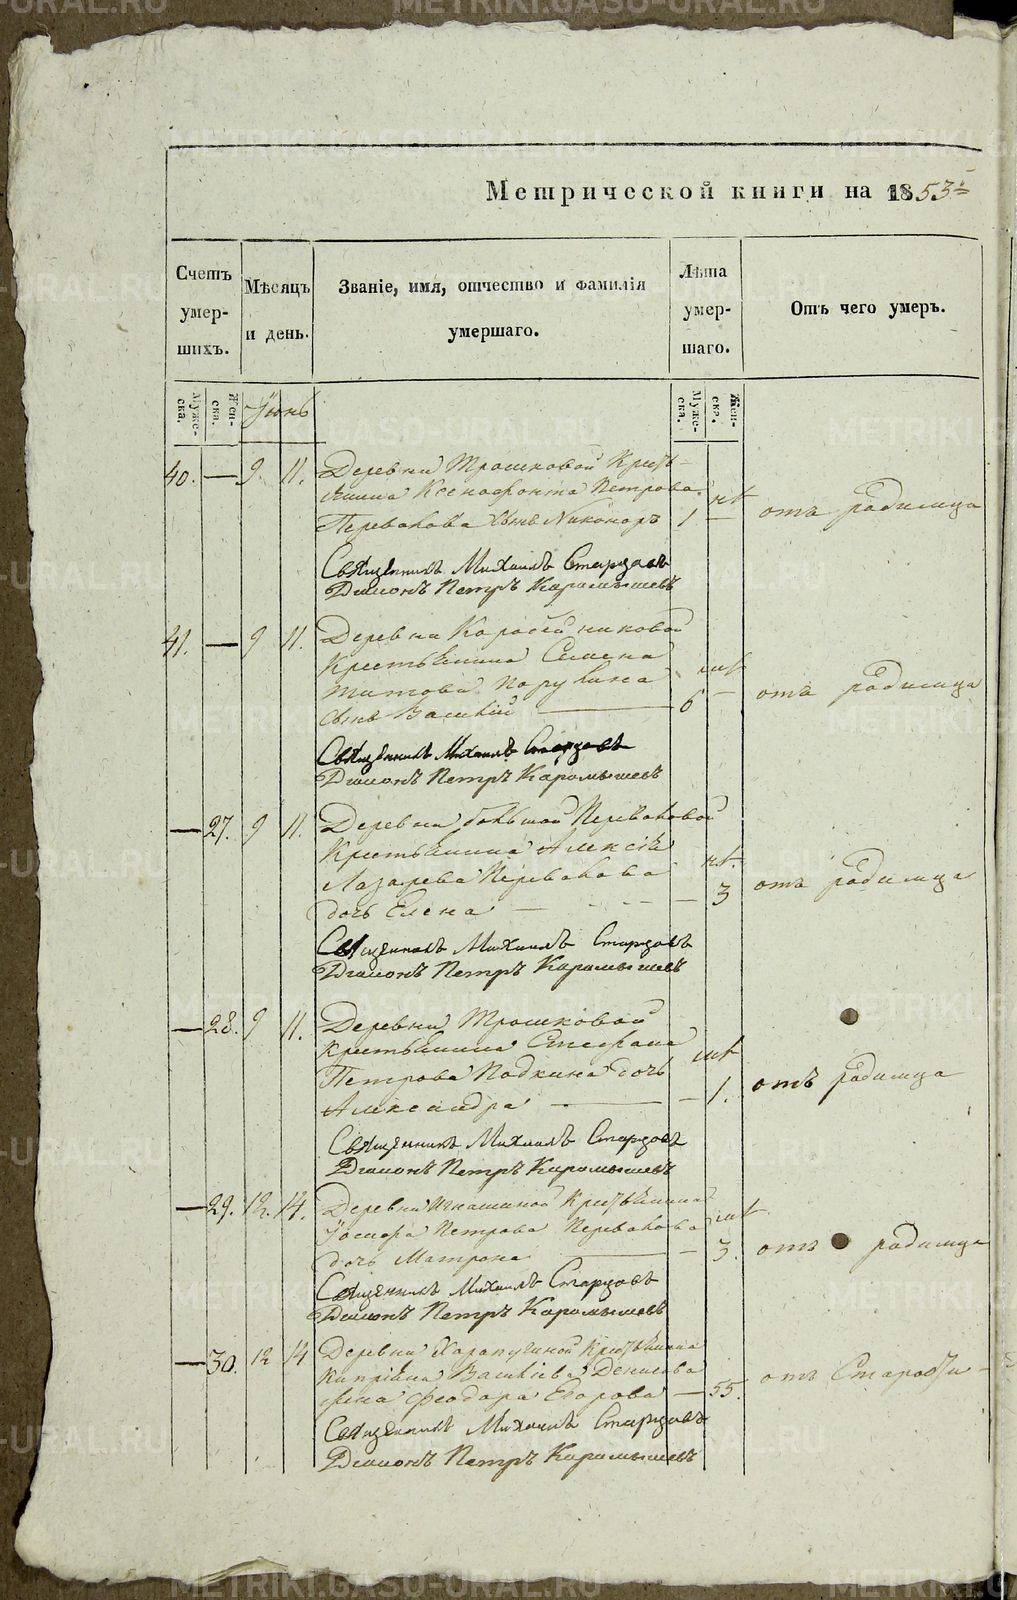 Метрической книги на 1853й
Счетъ умершихъ.
Мѣсяцъ и день.
Званіе, имя, отчество и фамилія умершаго.
Лѣта умершаго.
Отъ чего умеръ.
Муже-ска.
Жен-ска.
Іюнь
Муже-ска.
Жен-ска.
40. — 9. 11. Деревни Трошковой Кресть-
янина Ксенофонта Петрова
Перевалова сынъ Никоноръ 1 — отъ родимца
Священникъ Михаилъ Старцовъ
Діаконъ Петръ Карамышевъ
41. — 9 11. Деревни Коробейниковой
Крестьянина Семена
Титова
сынъ Василій — 6 — отъ родимца
Священникъ Михаилъ Старцовъ
Діаконъ Петръ Карамышевъ
— 27. 9 11. Деревни большой Переваловой
Крестьянина Алексія
Лазарева Перевалова
дочь Елена — 3 отъ родимца
Священникъ Михаилъ Старцовъ
Діаконъ Петръ Карамышевъ
— 28. 9 11. Деревни Трошковой
Крестьянина Стефана
Петрова Падкина дочь
Александра — — 1. отъ родимца
Священникъ Михаилъ Старцовъ
Діаконъ Петръ Карамышевъ
— 29. 12. 14. Деревни Игнашиной Крестьянина
Іосифа Петрова Перевалова
дочь Матрона — — 3. отъ родимца
Священникъ Михаилъ Старцовъ
Діаконъ Петръ Карамышевъ
— 30. 12 14 Деревни Крестьянина
Кипріяна Василіева Денисова
жена Феодора Егорова — 55. отъ
Священникъ Михаилъ Старцовъ
Діаконъ Петръ Карамышевъ
METRIKI.GASO-URAL.RU